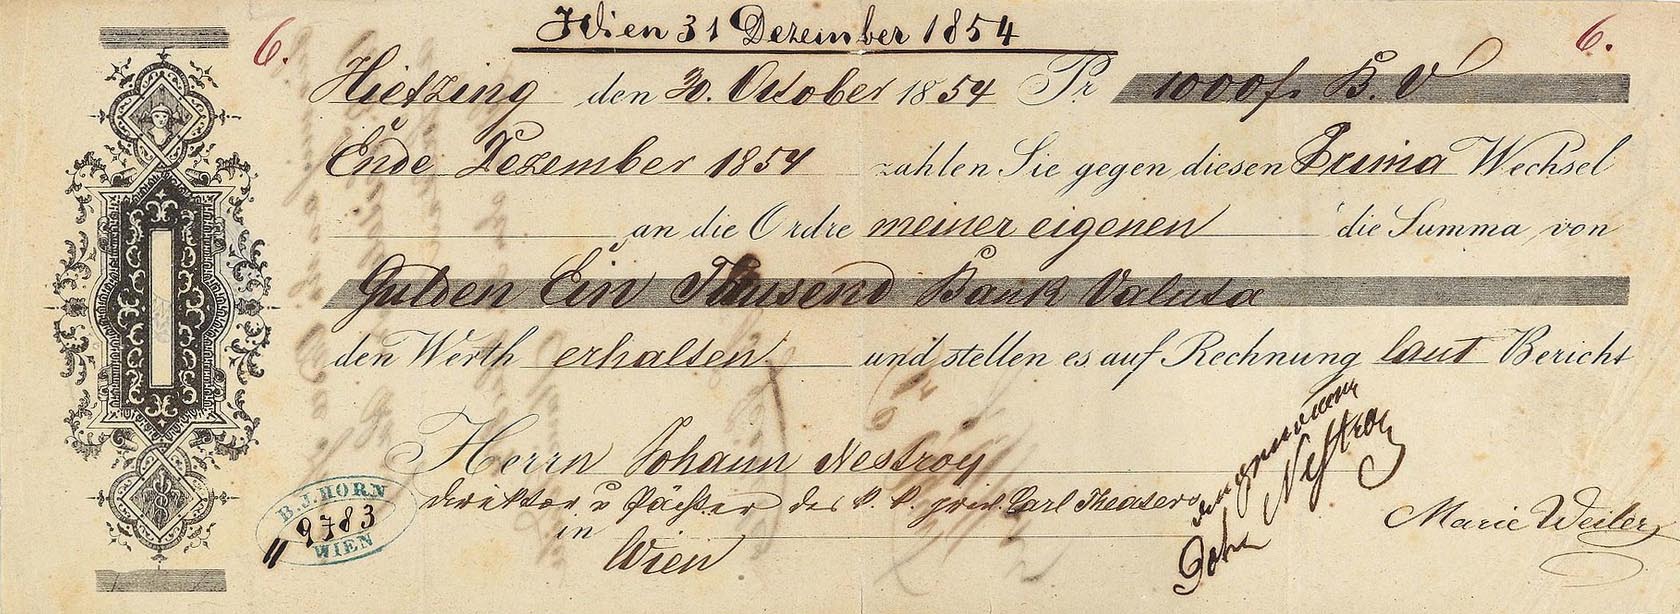 Wien 31 Dezember 1854
6.
6.
Hietzing den 30. October 1854 Pr 1000f. B. V
Ende Dezember 1854 zahlen Sie gegen diesen Prima Wechsel
an die Ordre meiner eigenen die Summa von
Gulden Ein Tausend Bank Valuta
den Werth erhalten und stellen es auf Rechnung laut Bericht
Herrn Johann Nestroy
Direktor u Pächter des k. k. priv. Carl Theaters
in Wien
angenommen
Joha Nestroy
Marie Weiler
B. J. HORN
9783
WIEN